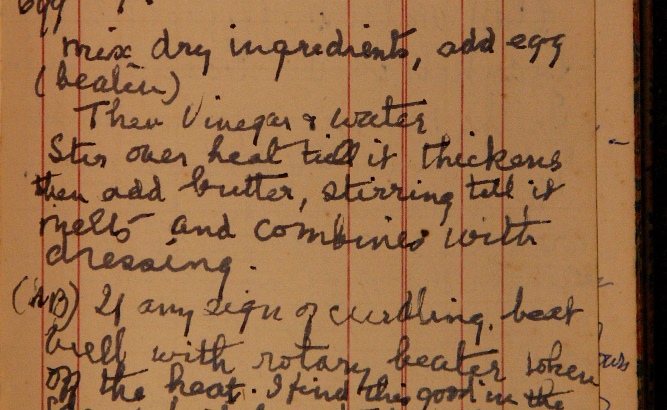 egg
mix dry ingredients, add egg
(beaten)
Then Vinegar & water
Stir over heat till it thickens
then add butter, stirring till it
melts and combines with
dressing.
(NB) If any sign of curdling. beat
well with rotary beater when
off the heat. I find this good in the